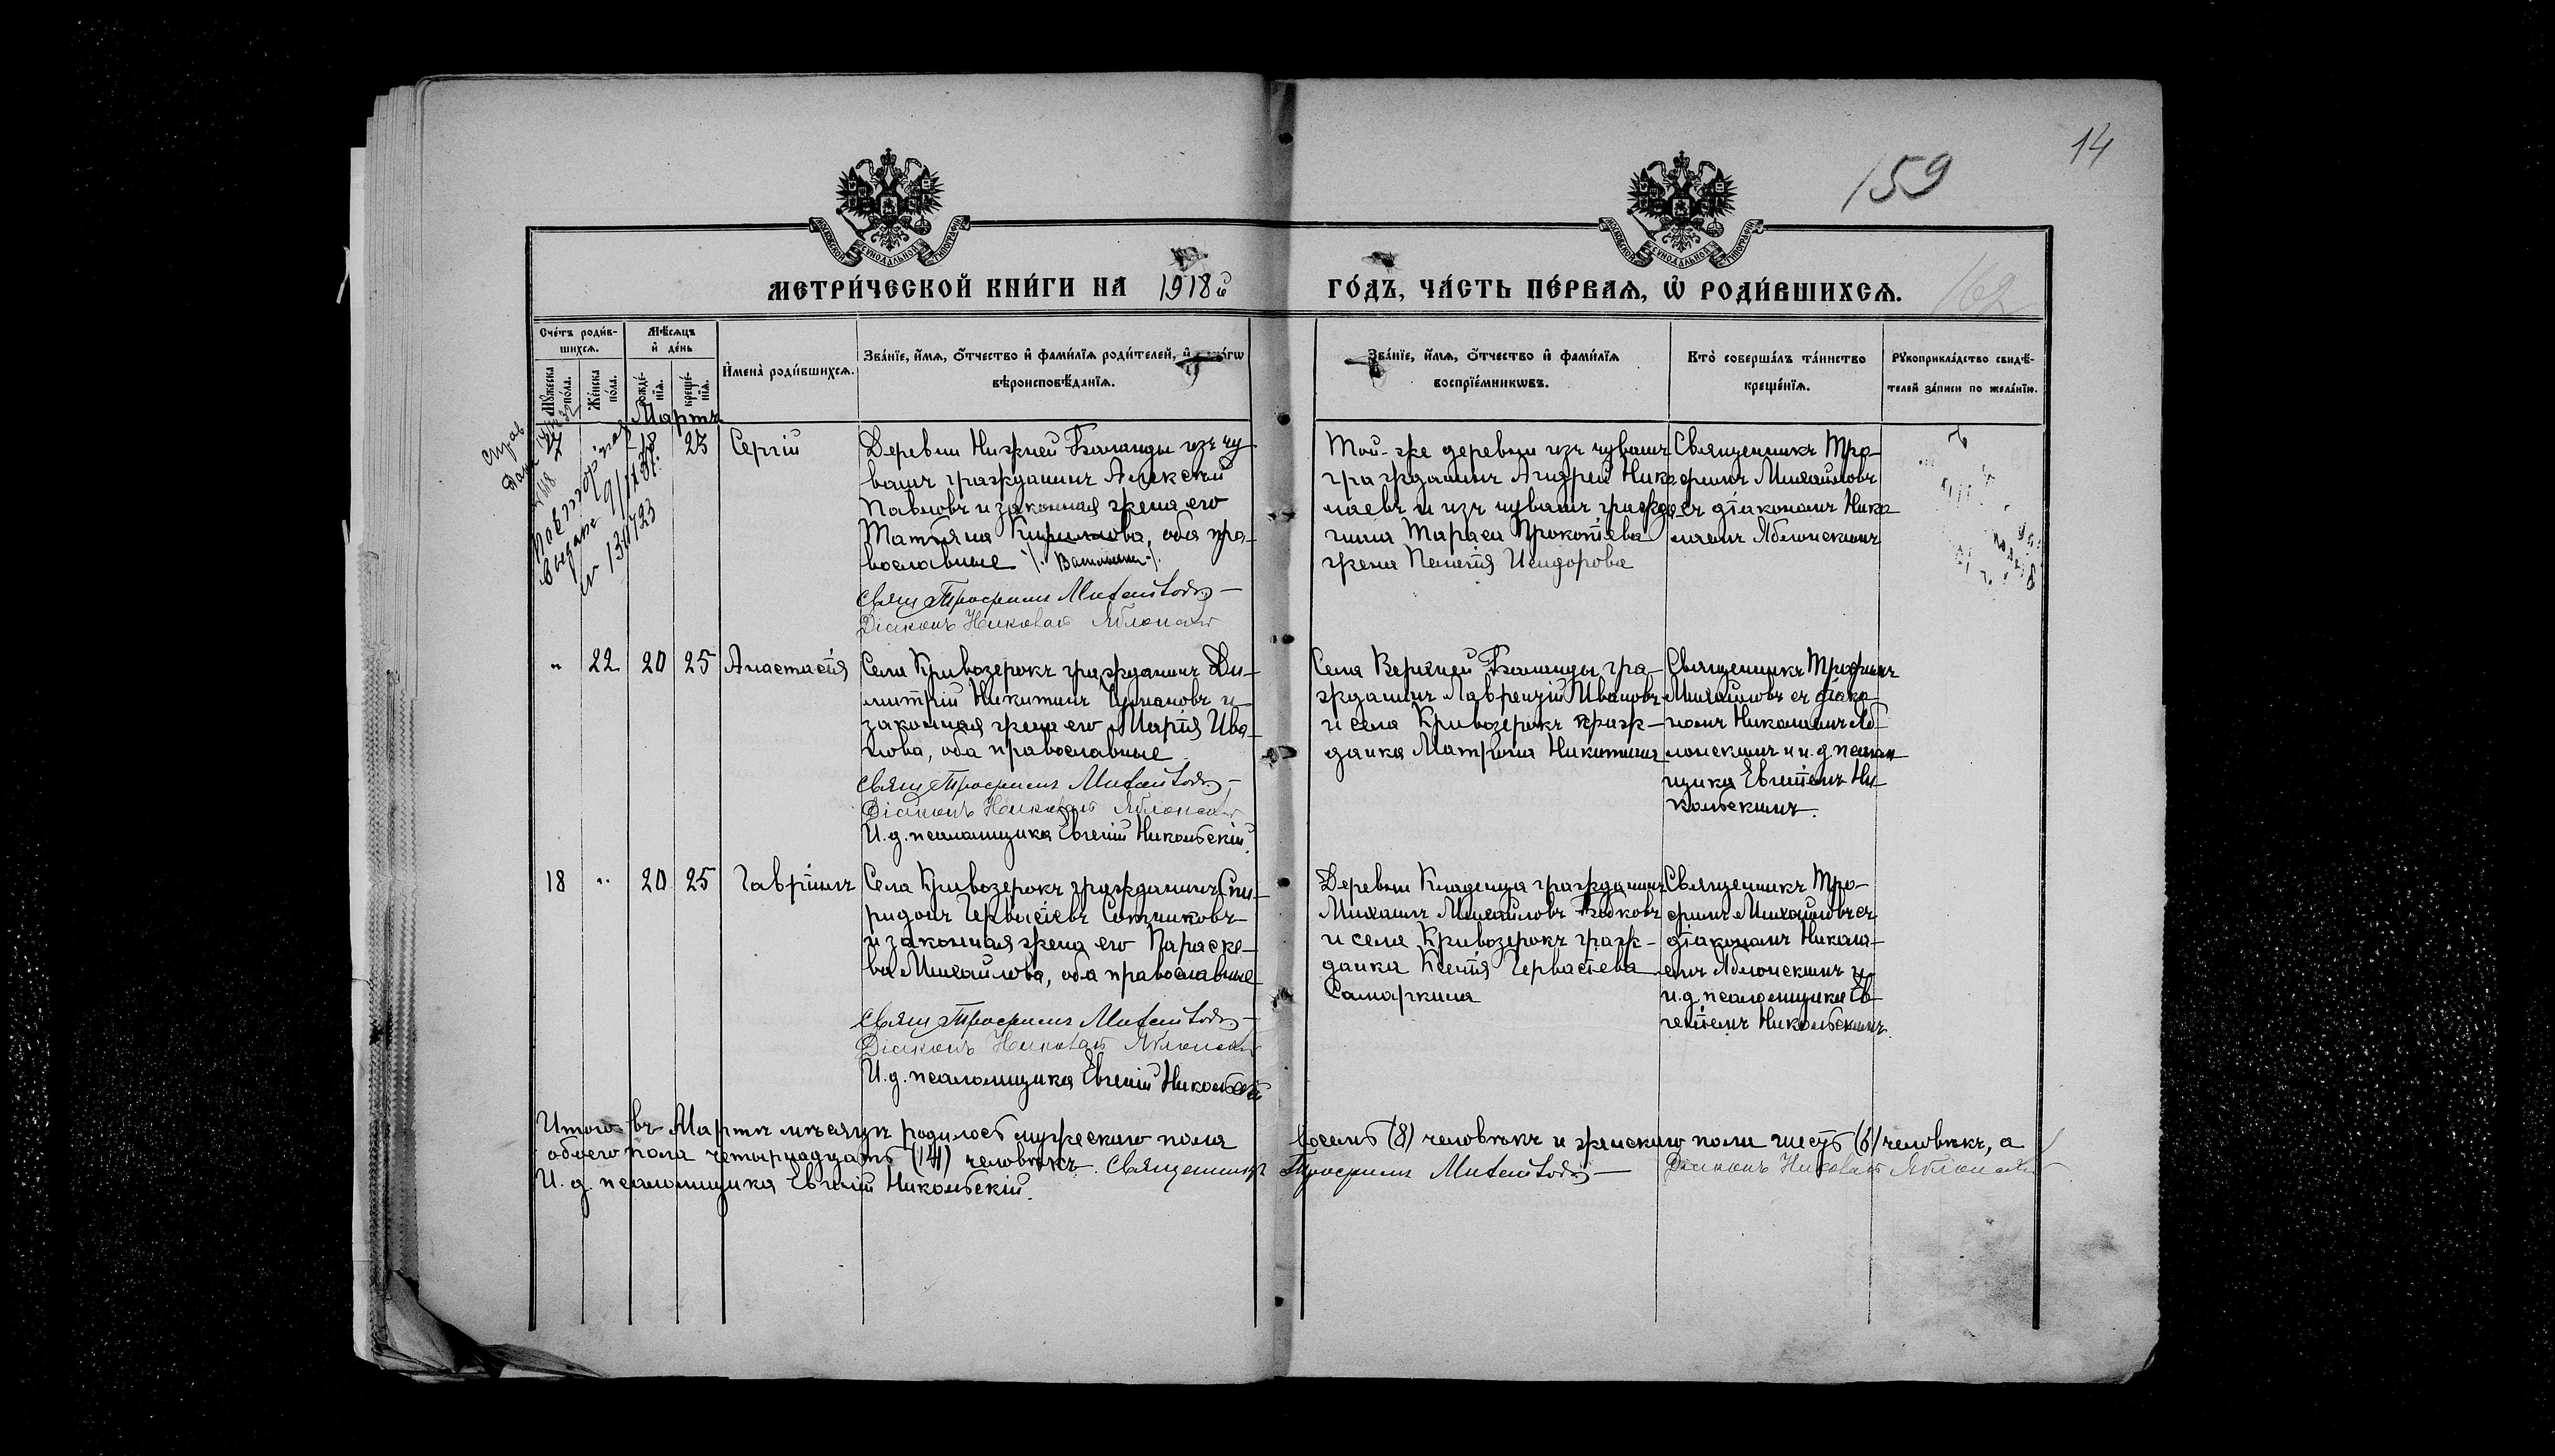 14
159
162
МОСКОВСКОЙ СѴНОДАЛЬНОЙ ТИПОГРАФІИ
МОСКОВСКОЙ СѴНОДАЛЬНОЙ ТИПОГРАФІИ
МЕТРИ́ЧЕСКОЙ КНИ́ГИ НА 1918й ГО́ДЪ, ЧА́СТЬ ПЕ́РВАѦ, Ѡ҆ РОДИ́ВШИХСѦ.
Сче́тъ роди́в-
шихсѧ.
Мꙋ́жеска по́ла.
Же́нска по́ла.
Мѣ́сѧцъ и҆ де́нь
рожде́-
нїѧ.
креще́-
нїѧ.
И҆мена̀ роди́вшихсѧ.
Зва́нїе, и҆́мѧ, ѻ҆́тчество и҆ фами́лїѧ роди́телей, и҆
вѣроисповѣ́данїѧ.
Зва́нїе, и҆́мѧ, ѻ҆́тчество и҆ фами́лїѧ
воспрїе́мникѡвъ.
Кто̀ соверша́лъ та́инство
креще́нїѧ.
Рꙋкоприкла́дство свидѣ́-
телей за́писи по жела́нїю.
Мартъ
17 18 23 Сергій
Деревни Нижней Баланды изъ чу-
вашъ гражданинъ Алексѣй
Павловъ и законная жена его
Татьяна Кириллова, оба пра-
вославные
Свящ Трофимъ Михайловъ
Діаконъ Николай Яблонскій
Той-же деревни изъ чувашъ
гражданинъ Андрей Нико-
лаевъ и изъ чувашъ гражда-
нина Тараса Прокопіева
жена Пелагія Исидорова
Священникъ Тро-
фимъ Михайловъ
съ діакономъ Нико
лаемъ Яблонскимъ
" 22 20 25 Анастасія
Села Кривозерокъ гражданинъ Ди-
митрій Никитинъ и
законная жена его Марія Ива-
нова, оба православные
Свящ Трофимъ Михайловъ
Діаконъ Николай Яблонскій
И. д. псаломщика Евгеній Никольскій.
Села Верхней Баланды гра-
жданинъ Лаврентій Ивановъ
и села Кривозерокъ граж-
данка Матрона Никитина
Священникъ Трофимъ
Михайловъ съ діако-
номъ Николаемъ Яб-
лонскимъ и и. д. псалом
щика Евгеніемъ Ни-
кольскимъ.
18 " 20 25 Гавріилъ
Села Кривозерокъ гражданинъ Спи-
ридонъ Гервасіевъ Сотниковъ
и законная жена его Параске-
ва Михайлова, оба православные
Свящ Трофимъ Михайловъ
Діаконъ Николай Яблонскій
И. д. псаломщика Евгеній Никольскій
Деревни Кладенца гражданинъ
Михаилъ Михайловъ
и села Кривозерокъ граж-
данка Ксенія Гервасіева
Самаркина
Священникъ Тро-
фимъ Михайловъ съ
діакономъ Никола-
емъ Яблонскимъ и
и. д. псаломщика Ев-
геніемъ Никольскимъ.
Итого въ Мартѣ мѣсяцѣ родилось мужескаго пола восемь (8) человѣкъ и женскаго пола шесть (6) человѣкъ, а
обоего пола четырнадцать (14) человѣкъ. Священникъ Трофимъ Михайловъ Діаконъ Николай Яблонскій
И. д. псаломщика Евгеній Никольскій.